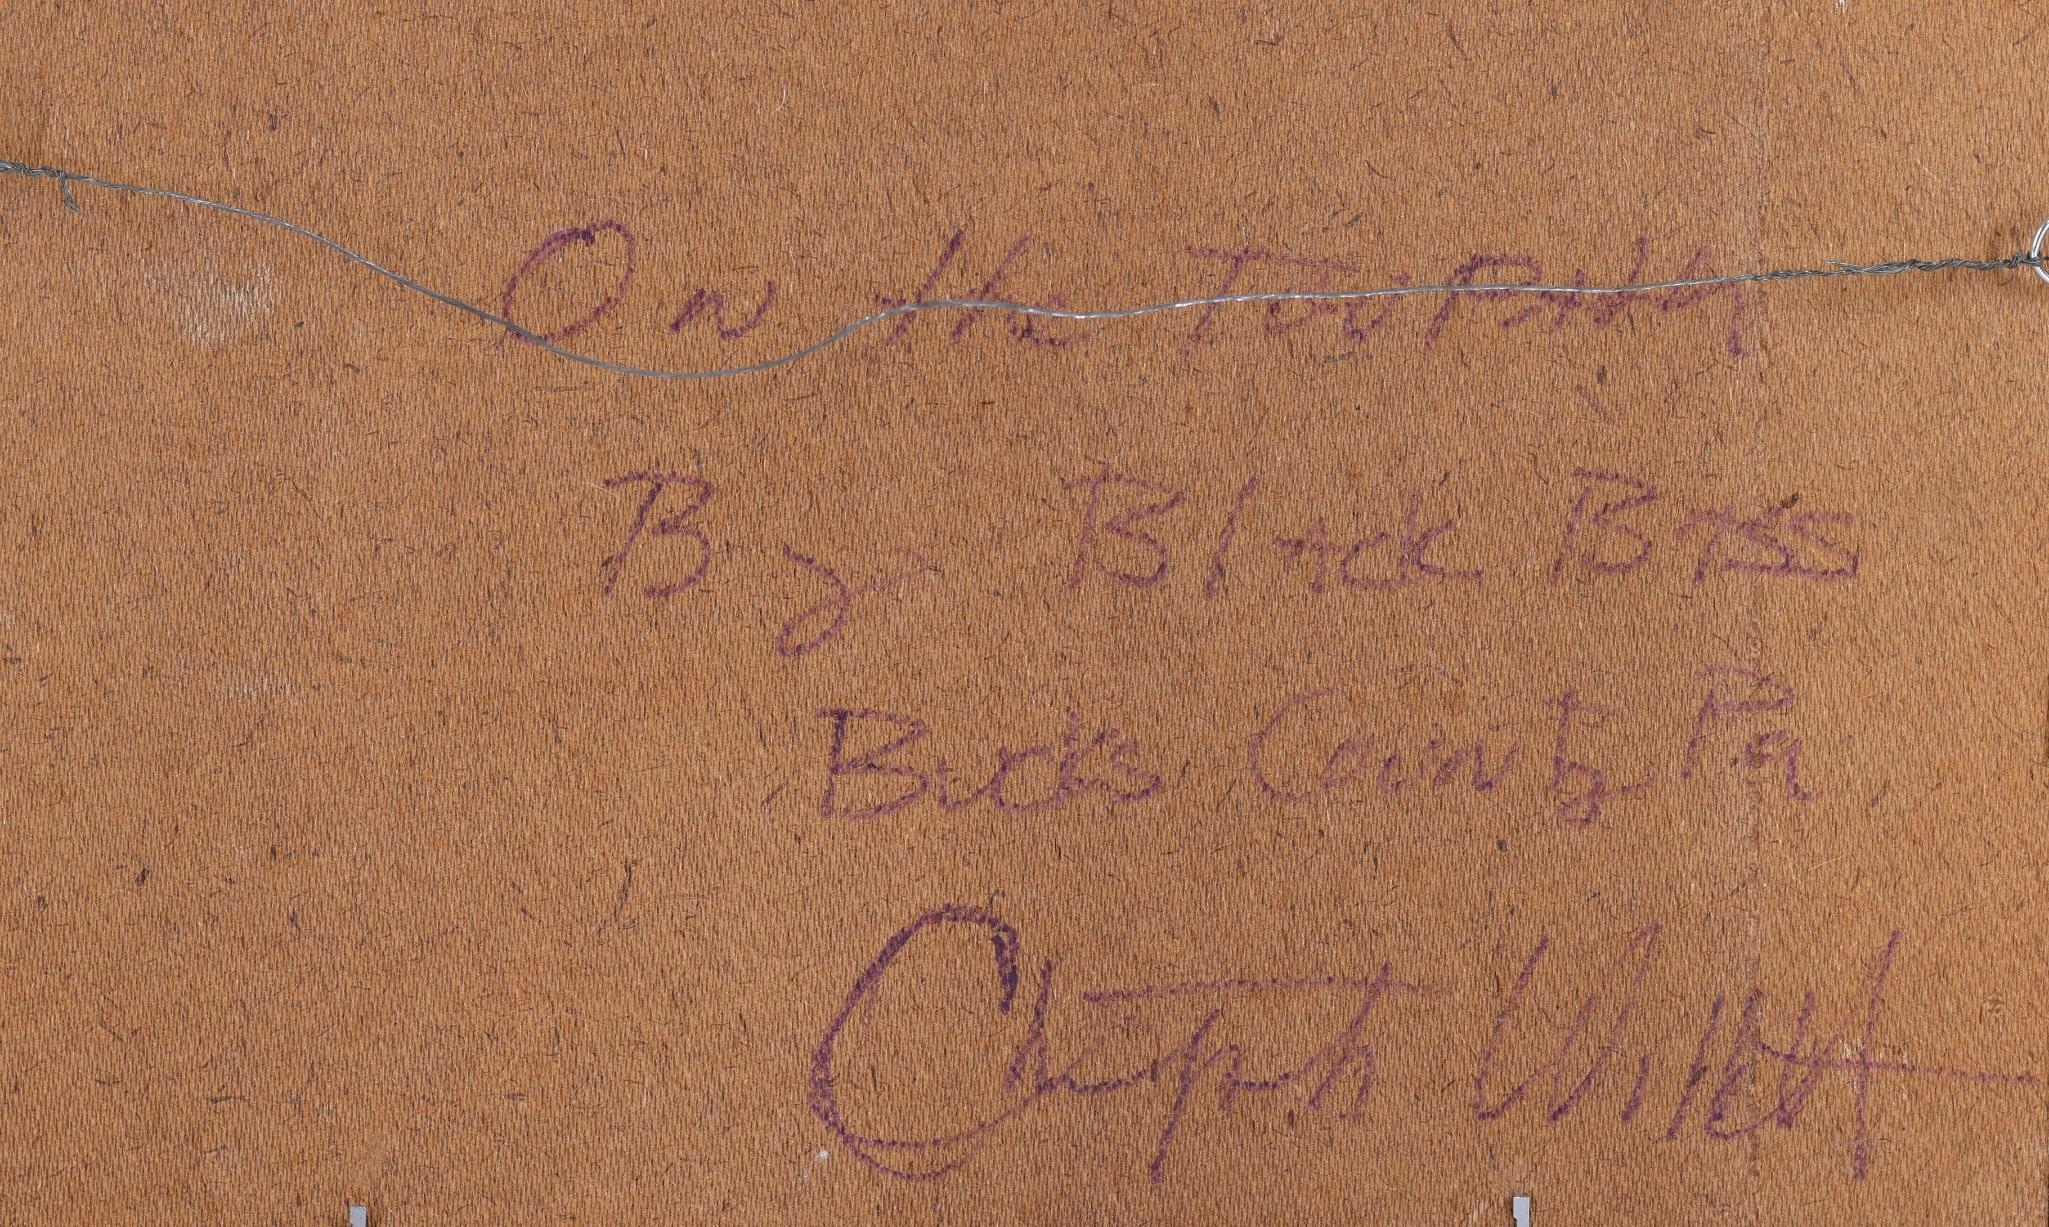 On the Tow Path
By Black Bass
Bucks County Pa
Christopher Willett